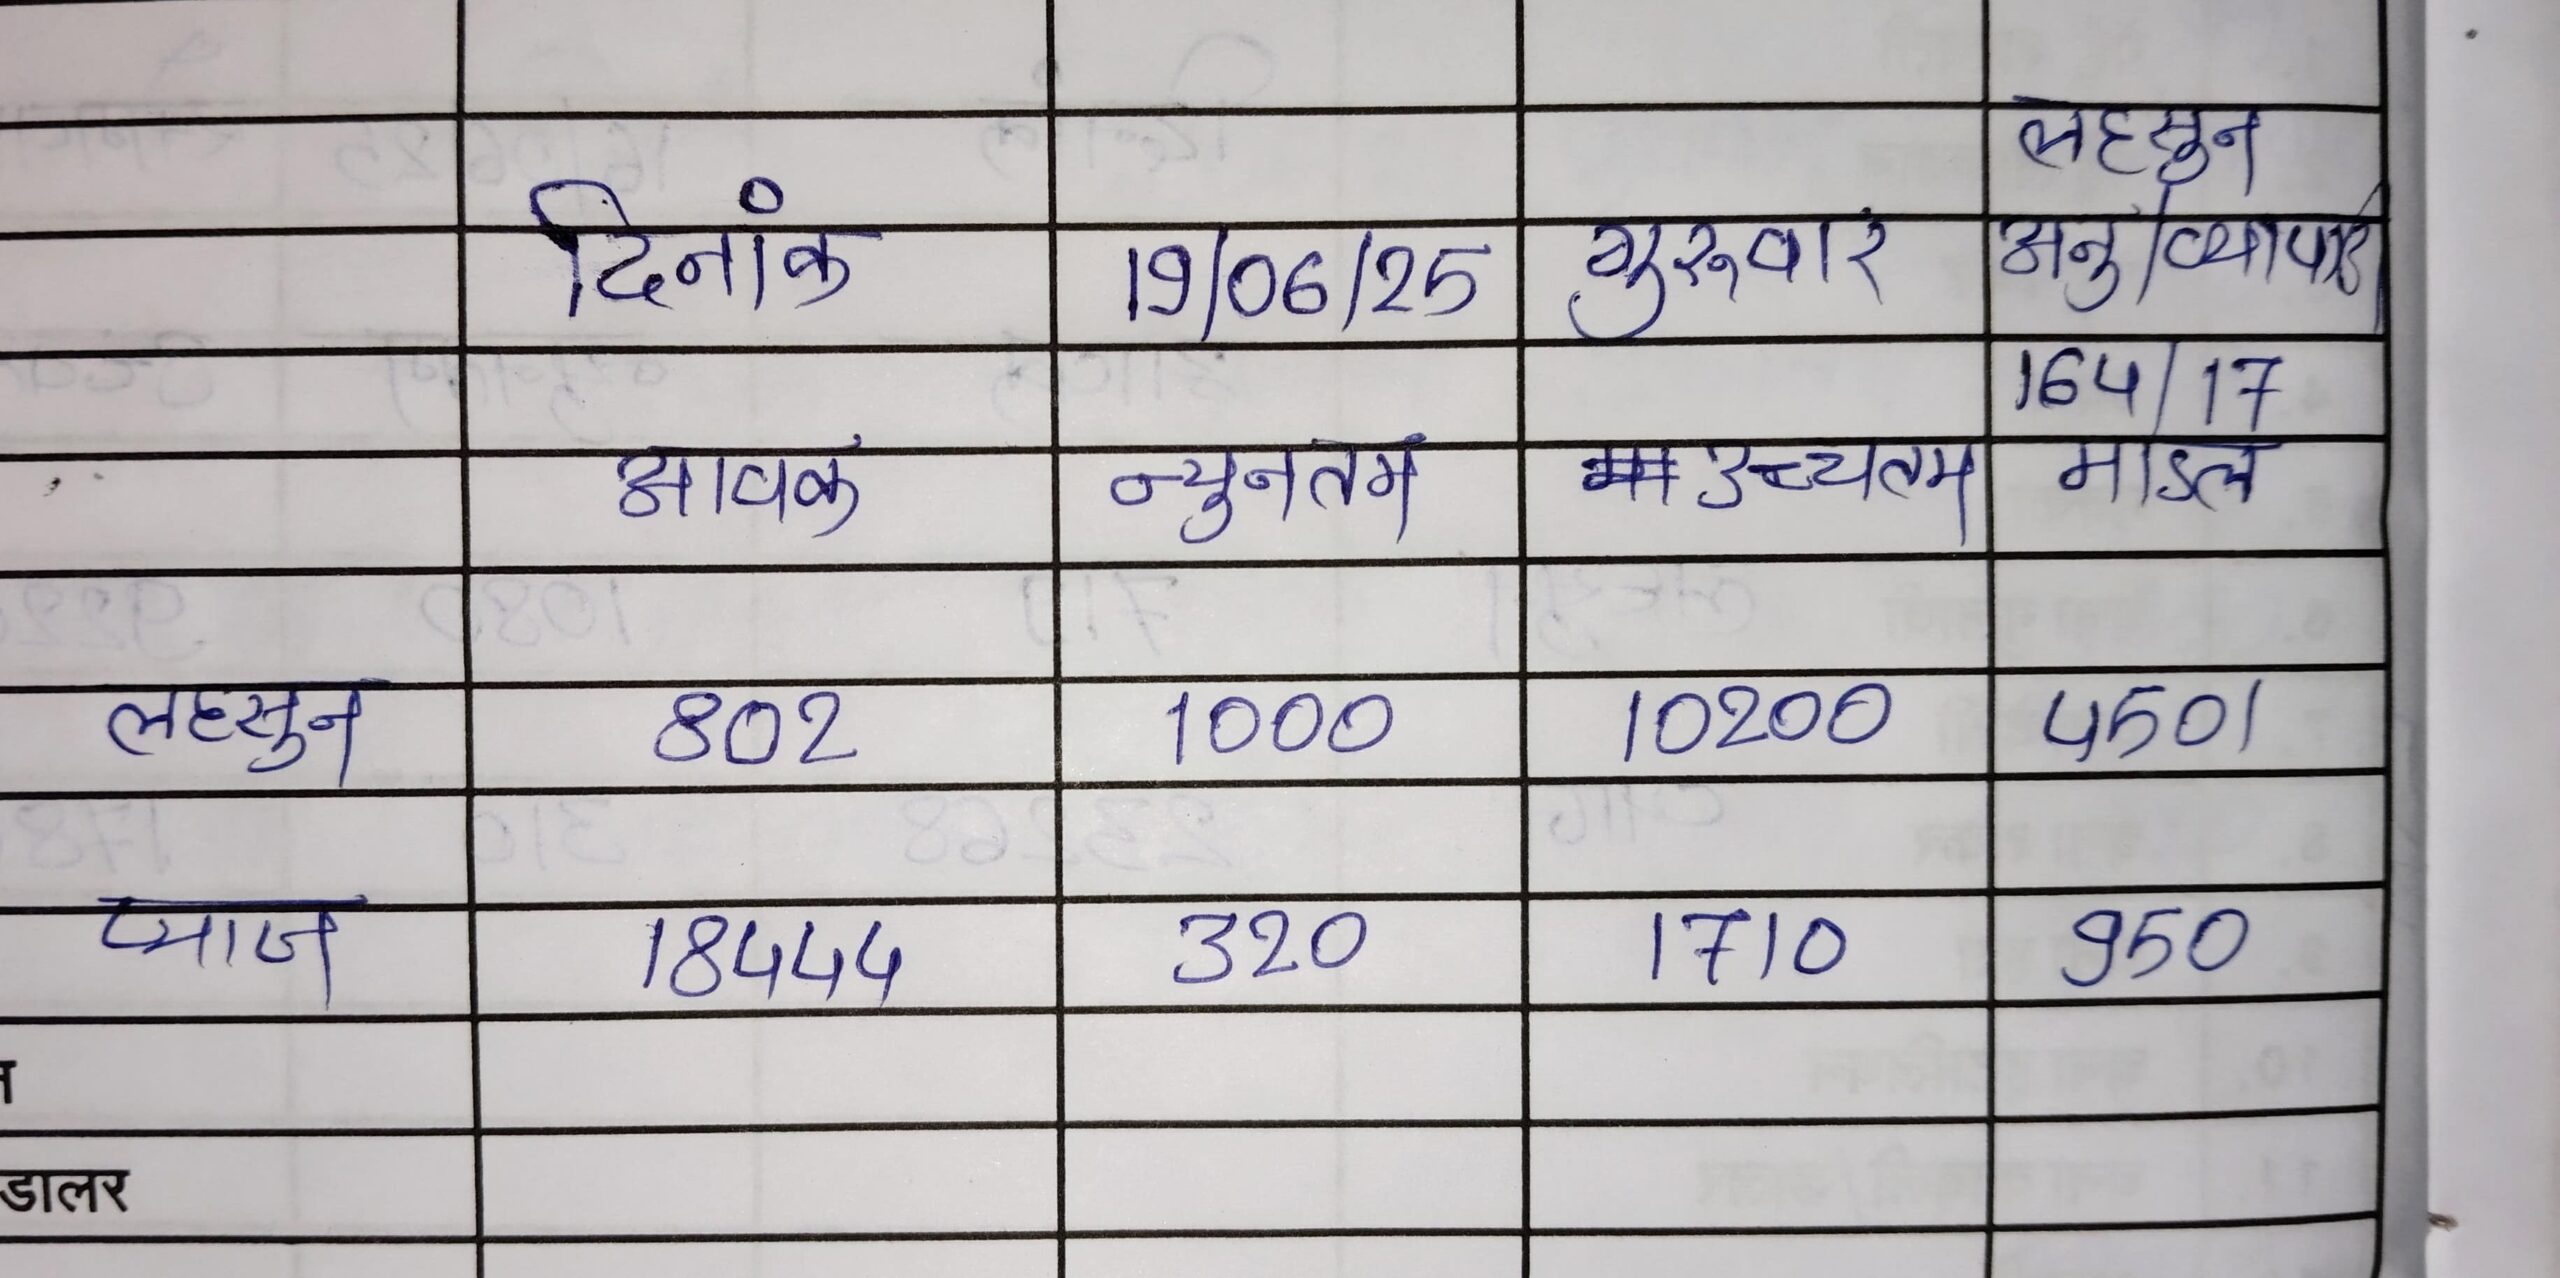 लहसुन
दिनांक 19/06/25 गुरुवार अनु/व्यापारी
164/17
आवक न्युनतम उच्चतम माडल
लहसुन 802 1000 10200 4501
प्याज 18444 320 1710 950
डालर